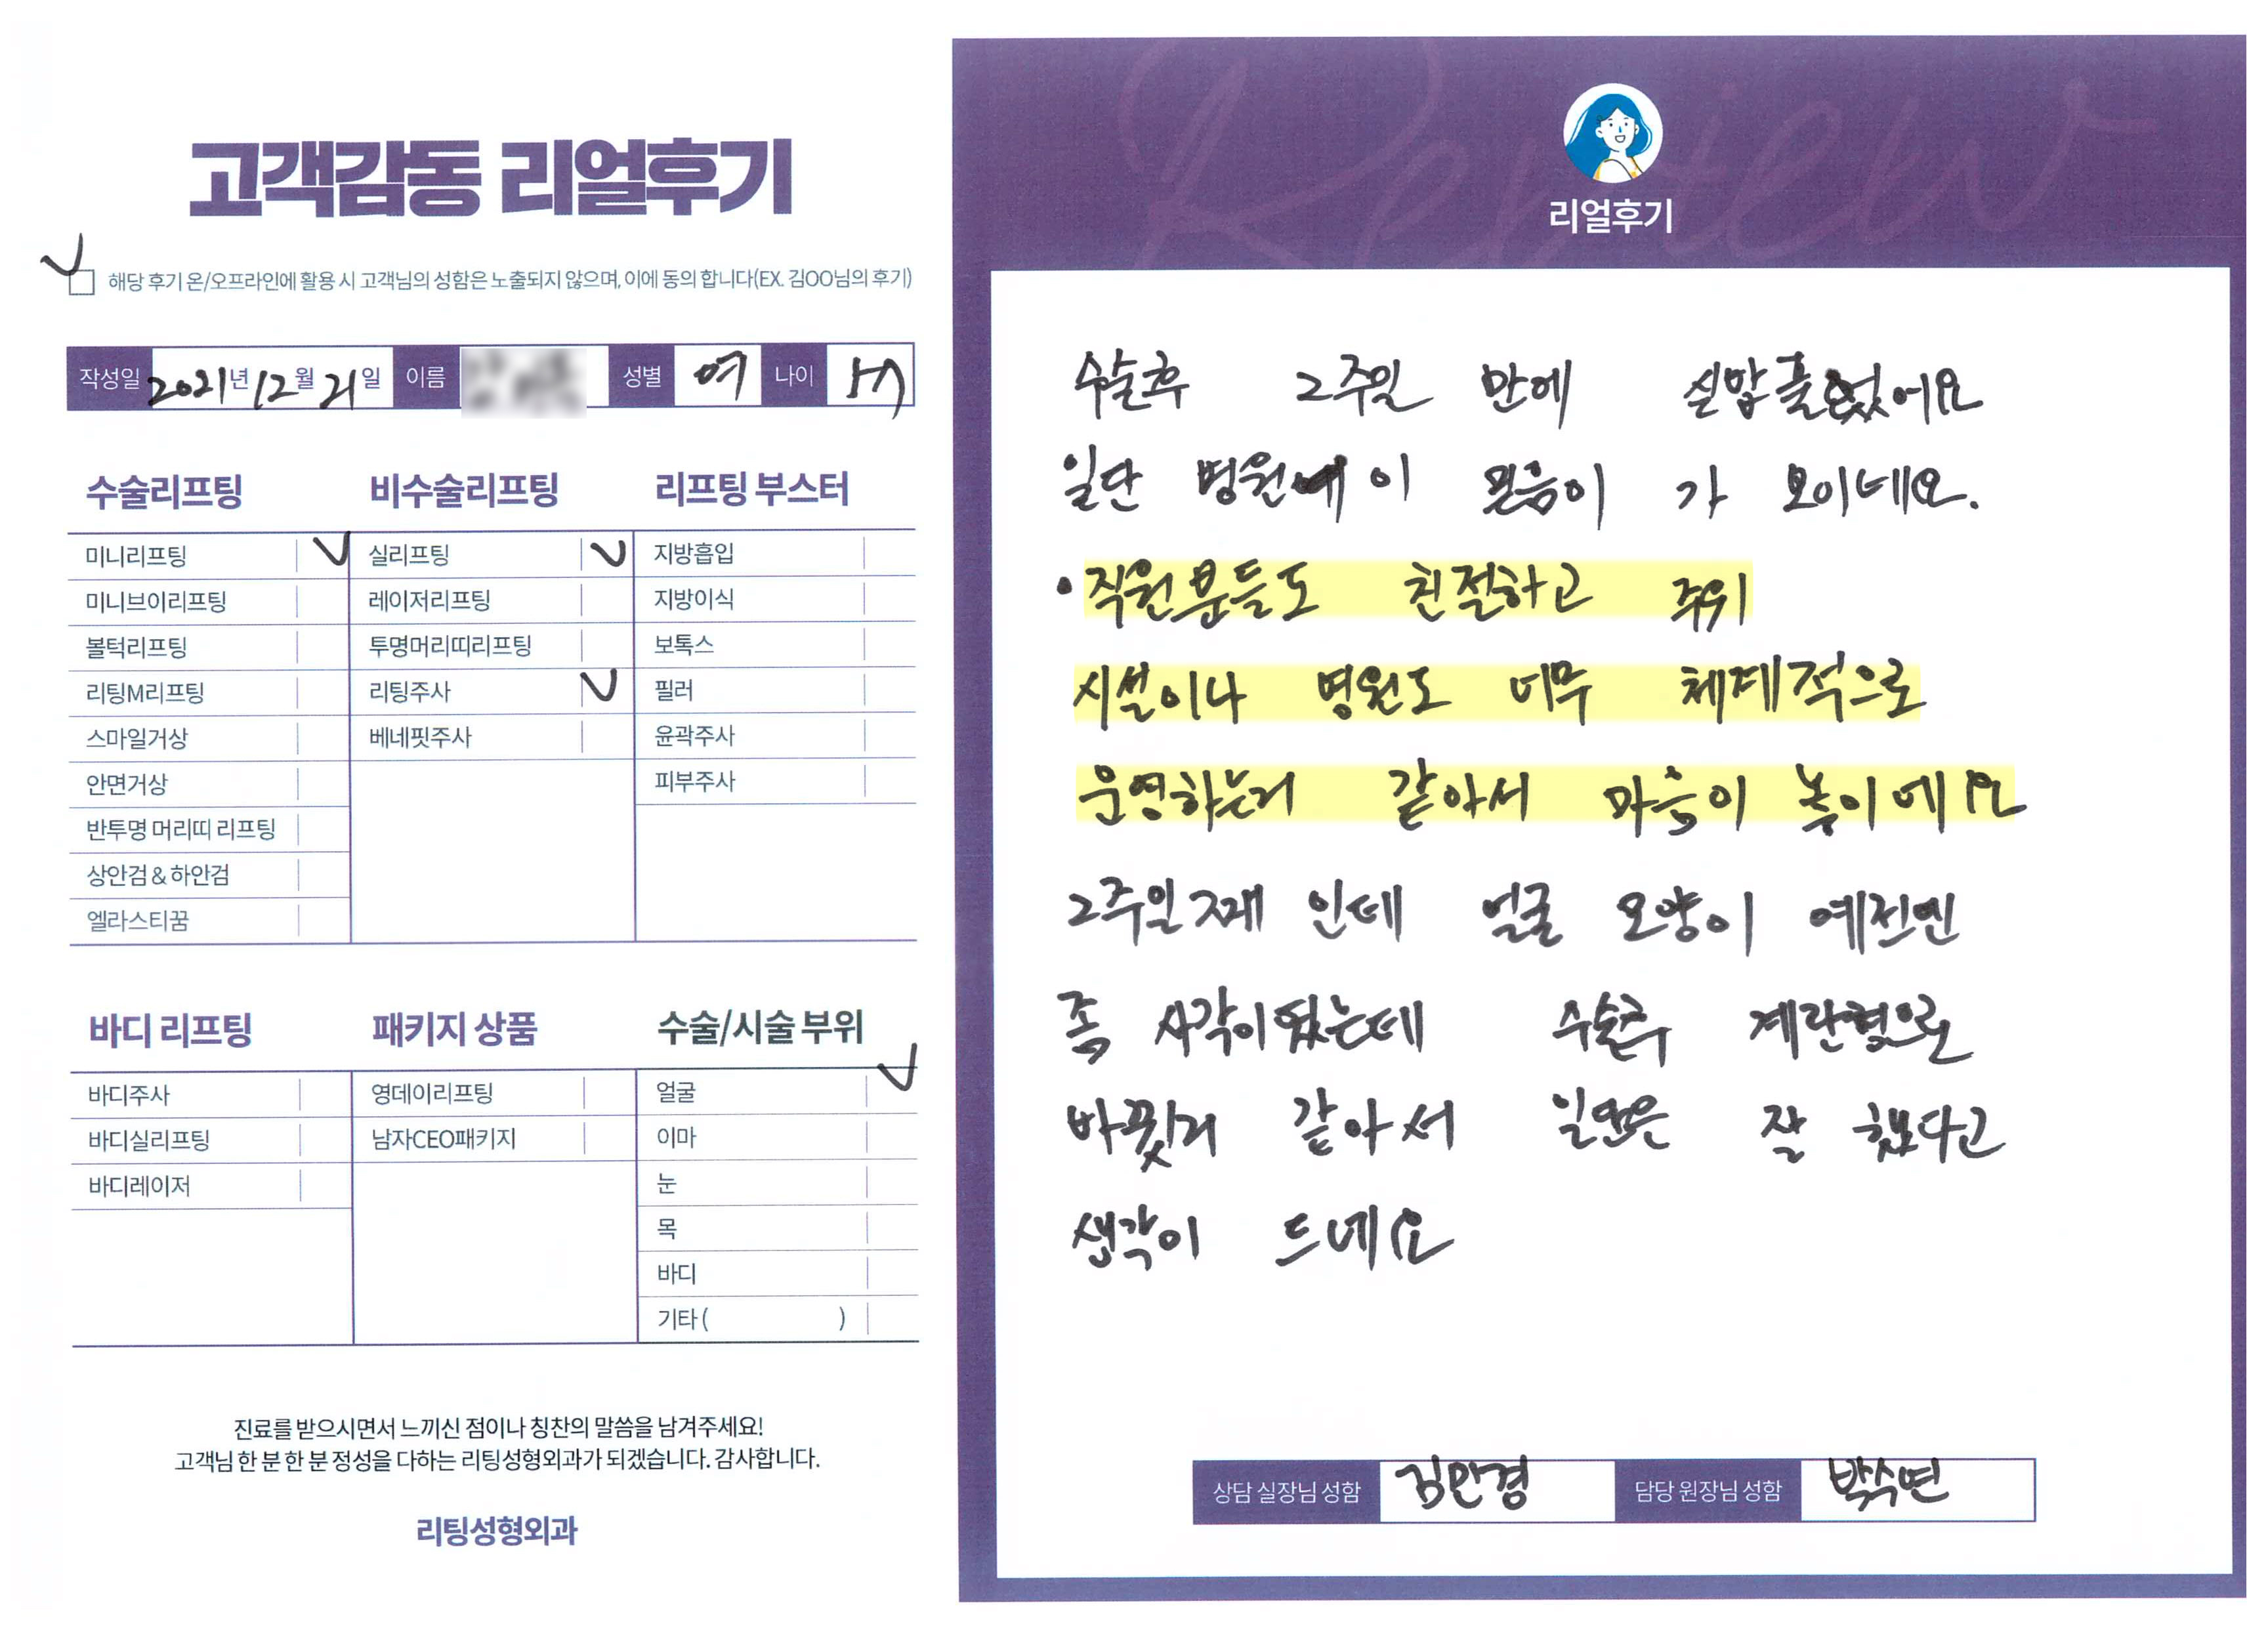 고객감동 리얼후기
해당 후기 온/오프라인에 활용 시 고객님의 성함은 노출되지 않으며, 이에 동의 합니다(EX. 김OO님의 후기)
작성일 2021년 12월 21일 이름 성별 여 나이
수술리프팅
미니리프팅
미니브이리프팅
볼턱리프팅
리팅M리프팅
스마일거상
안면거상
반투명 머리띠 리프팅
상안검 & 하안검
엘라스티꿈
비수술리프팅
실리프팅
레이저리프팅
투명머리띠리프팅
리팅주사
베네핏주사
리프팅 부스터
지방흡입
지방이식
보톡스
필러
윤곽주사
피부주사
바디 리프팅
바디주사
바디실리프팅
바디레이저
패키지 상품
영데이리프팅
남자CEO패키지
수술/시술 부위
얼굴
이마
눈
목
바디
기타 ( )
진료를 받으시면서 느끼신 점이나 칭찬의 말씀을 남겨주세요!
고객님 한 분 한 분 정성을 다하는 리팅성형외과가 되겠습니다. 감사합니다.
리팅성형외과
Review
리얼후기
수술후 2주일 만에 실밥풀었어요
일단 병원에 이 믿음이 가 보이네요.
• 직원분들도 친절하고 주위
시설이나 병원도 너무 체계적으로
운영하는거 같아서 마음이 놓이에요
2주일째 인데 얼굴 모양이 예전엔
좀 사각이었는데 수술후 계란형으로
바뀢거 같아서 일단은 잘 했다고
생각이 드네요
상담 실장님 성함 김민경 담당 원장님 성함 박수연